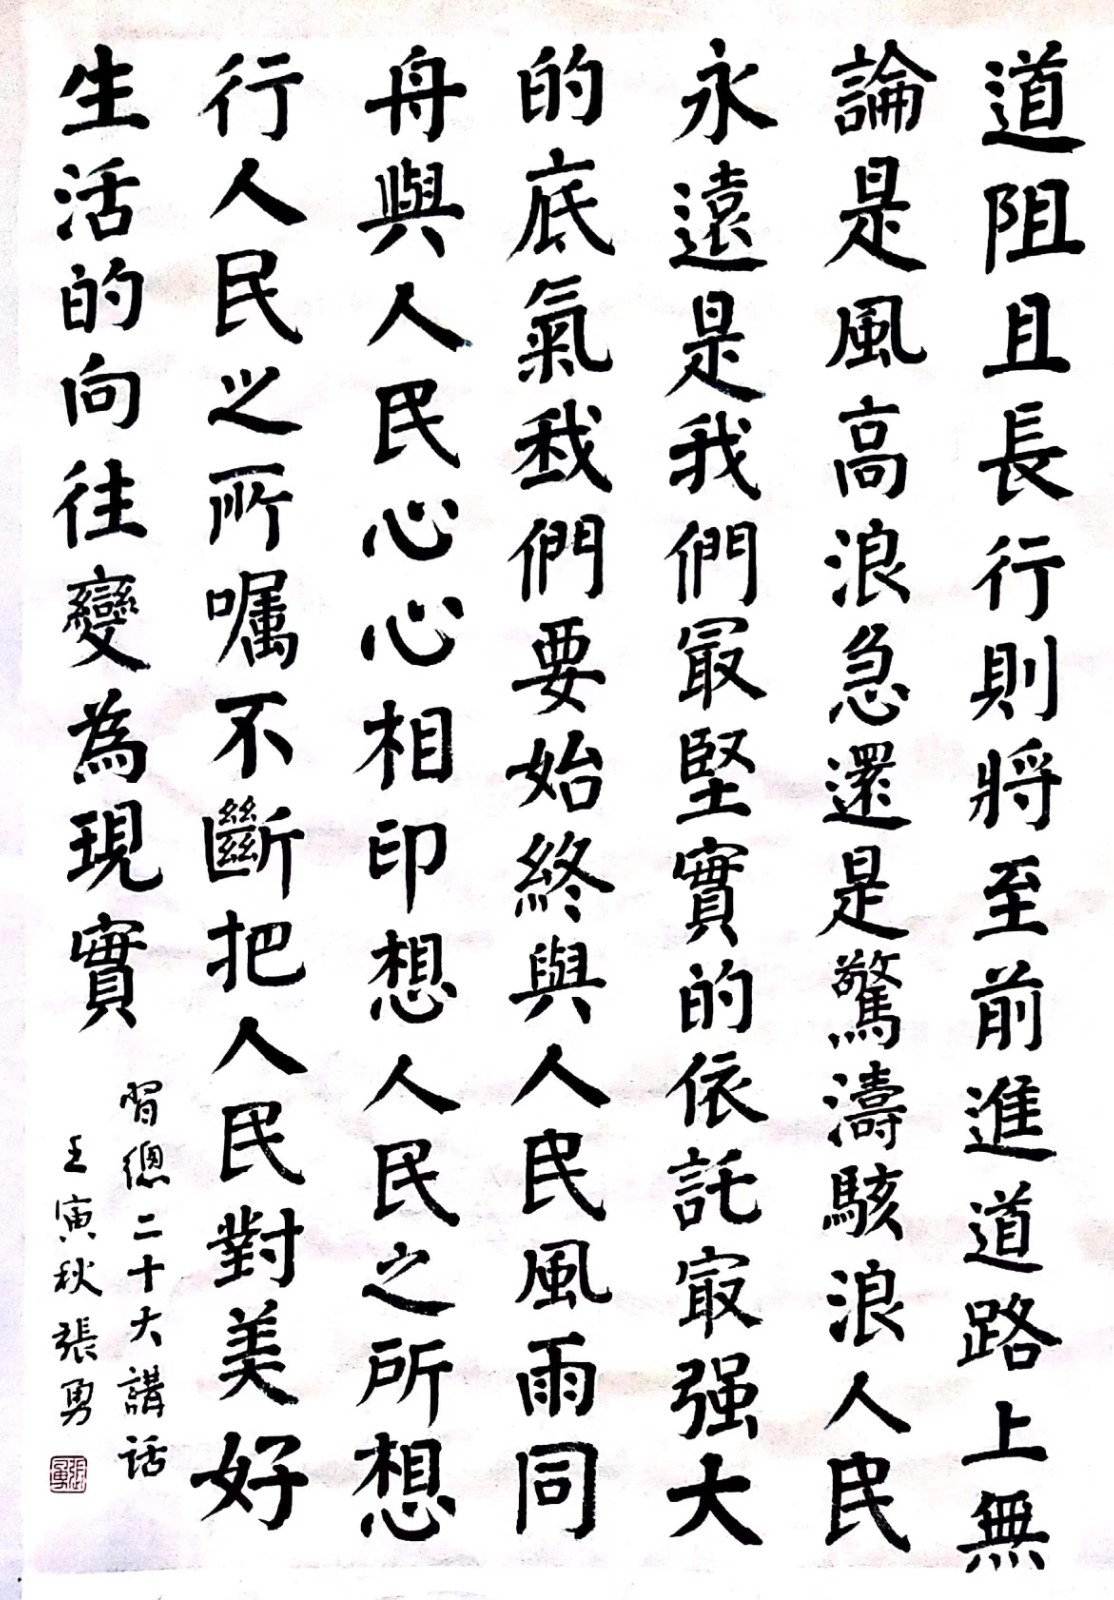 道阻且長行則將至前進道路上無
論是風高浪急還是驚濤駭浪人民
永遠是我們最堅實的依託最强大
的底氣我們要始終與人民風雨同
舟與人民心心相印想人民之所想
行人民之所囑不斷把人民對美好
生活的向往變為現實
習總二十大講話
壬寅秋張勇
張勇